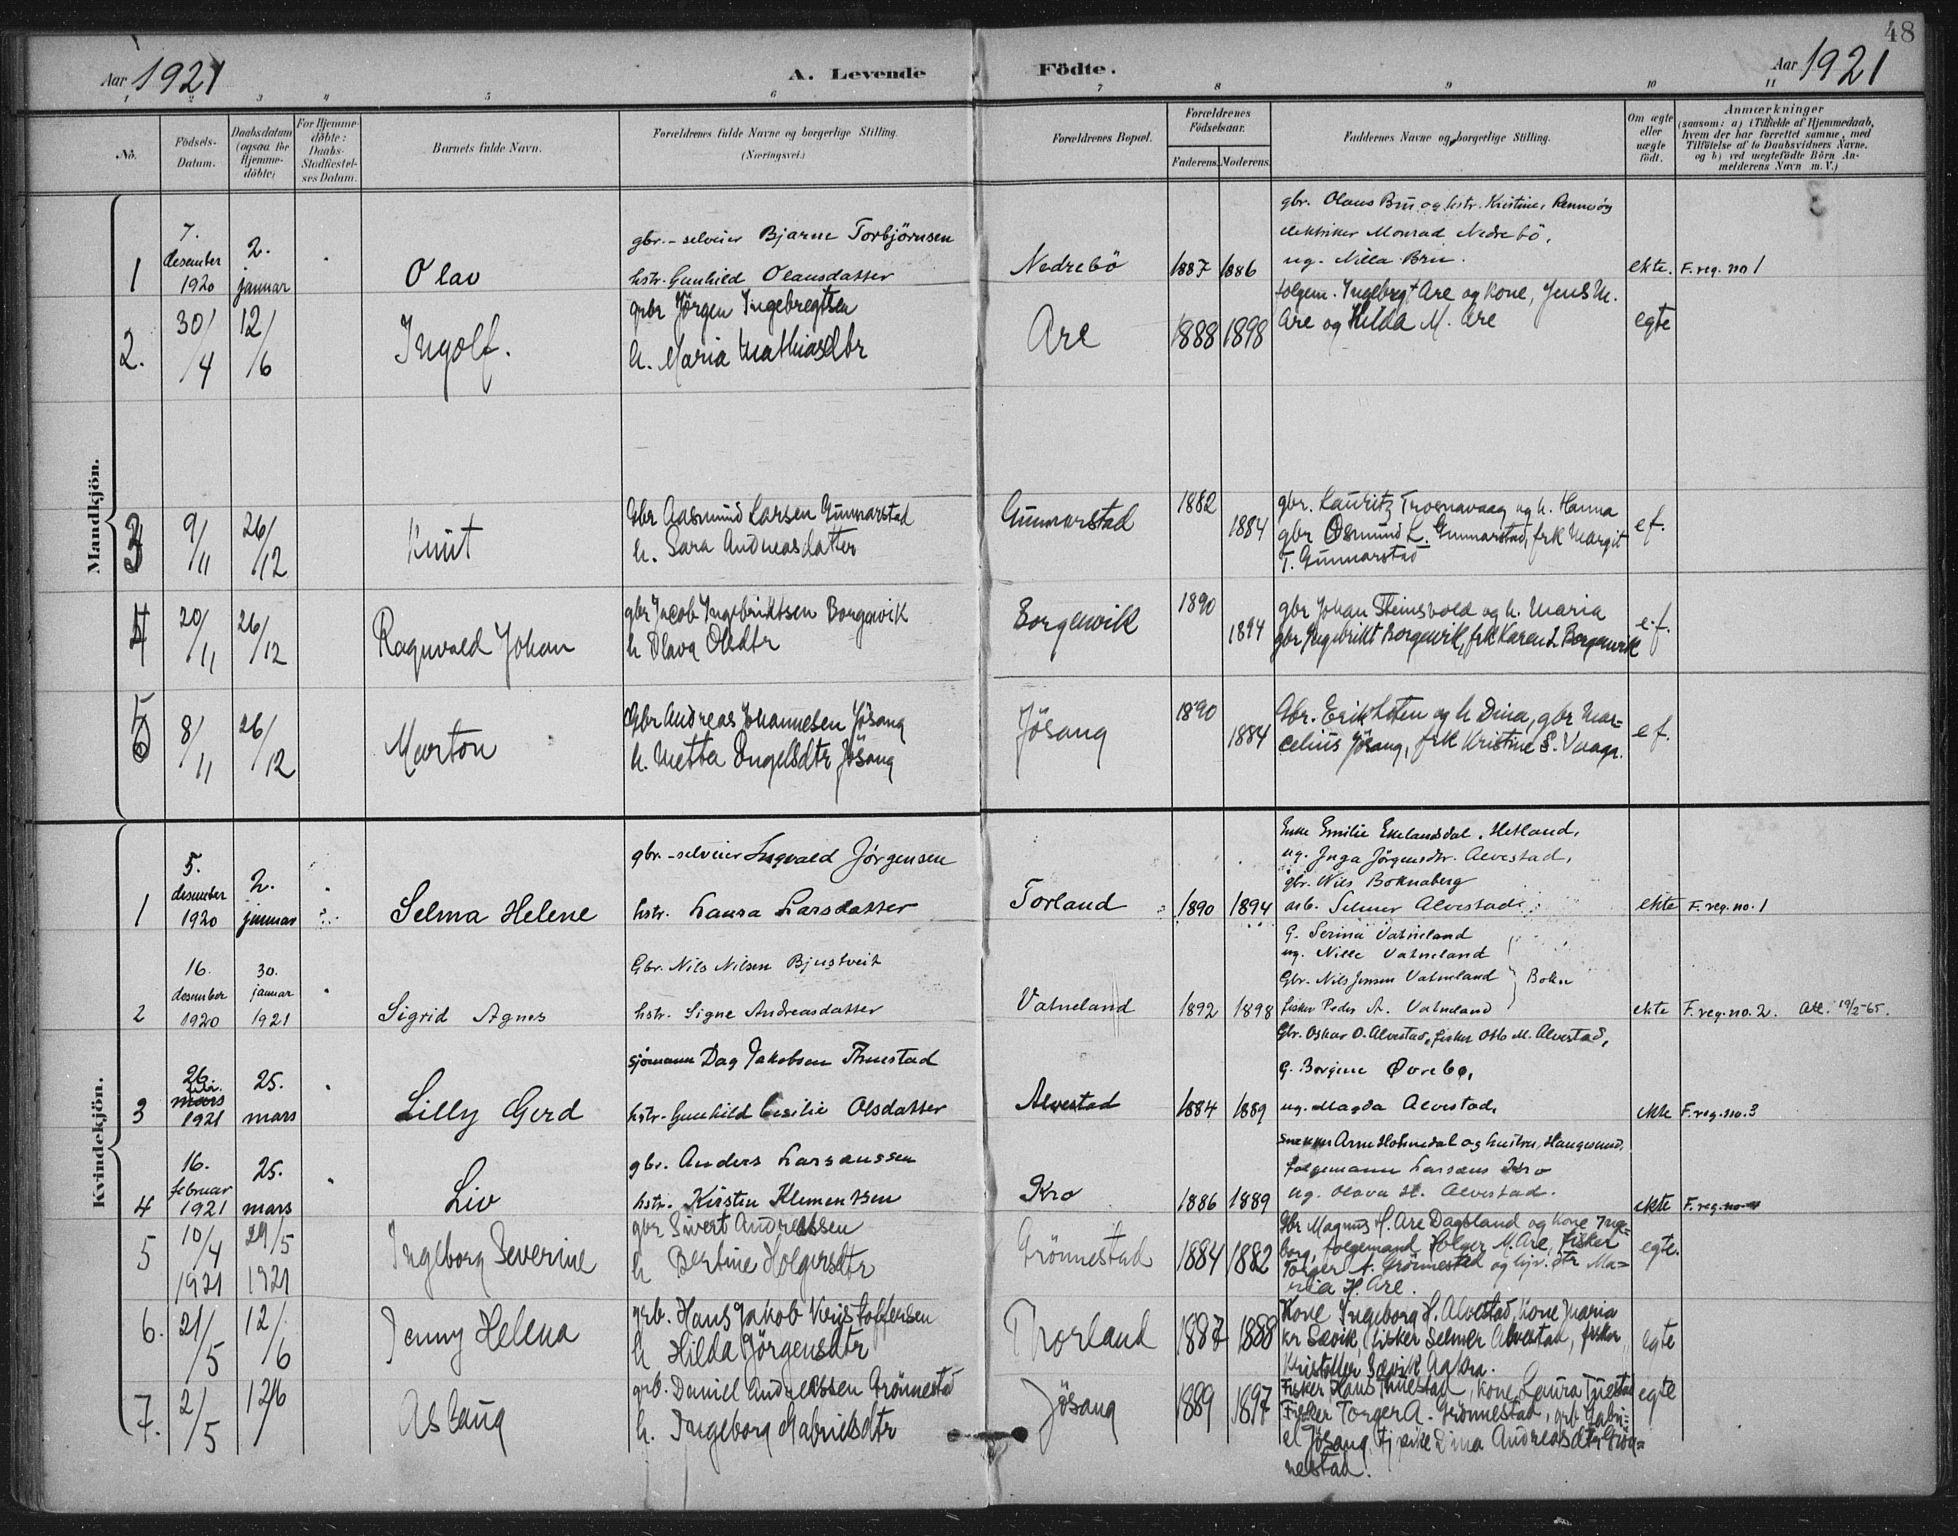 48
Aar 1921 A. Levende Födte. Aar 1921
1 2 3 4 5 6 7 8 9 10 11
No.
Födsels-Datum.
Daabsdatum (ogsaa for Hjemme-döbte)
For Hjemme-döbte: Daabs-Stadfæstel-ses Datum.
Barnets fulde Navn.
Forældrenes fulde Navne og borgerlige Stilling.
(Næringsvei.)
Forældrenes Bopæl.
Forældrenes Födselsaar.
Faderens. Moderens.
Faddernes Navne og borgerlige Stilling.
Om ægte eller uægte födt.
Anmærkninger
(saasom: a) i Tilfælde af Hjemmedaab,
hvem der har forrettet samme, med
Tilföielse af to Daabsvidners Navne,
og b) ved uægtefödte Börn An-
melderens Navn m. V.)
Mandkjön.
1
7. desember 1920
2. januar
Olav
gbr.-selveier Bjarne Torbjörnsen
hstr. Gunhild Olausdatter
Nedrebö
1887 1886
gbr. Olaus Bru og hstr. Kristine, Rennesöy
elektriker Monrad Nedrebö,
ug. Nilla Bru.
ekte.
F. reg. no 1
2.
30/4
12/6
Ingolf.
grbr Jörgen Ingebregtsen
h. Maria Mathiasdtr
Are
1888 1898
folgem. Ingebregt Are og kone, Jens M.
Are og Hilda M. Are
egte
3
9/11
26/12
Knut
Gbr Aasmund Larsen Gunnarstad
h. Sara Andreasdatter
Gunnarstad
1882 1884
gbr. Lauritz Trosnavaag og h. Hanna
gbr Osmund L. Gunnarstad, frk Margit
T. Gunnarstad
ef.
4
20/11
26/12
Ragnvald Johan
gbr Jacob Ingebriktsen Borgenvik
h Olava Olsdtr
Borgenvik
1890 1894
gbr Johan Steinsvold og h. Maria
gbr Ingebrikt Borgenvik, frk Karen L Borgenvik
e.f.
5
8/11
26/12
Marton
Gbr Andreas Johannesen Jösang
h. Metta Engelsdtr Jösang
Jösang
1890 1884
Gbr. Erik Loten og h Dina, gbr Mar-
celius Jösang, frk Kristine S. Vaaga.
e f.
Kvindekjön.
1
5. desember 1920
2. januar
Selma Helene
gbr.-selveier Ingvald Jörgensen
hstr. Laura Larsdatter
Torland
1890 1894
Enke Emilie Ekelandsdal, Hetland,
ug. Inga Jörgensdtr. Alvestad,
gbr. Nils Boknaberg
arb. Selmer Alvestad
ekte
F. reg. no. 1
2
16. desember 1920
30. januar 1921
Sigrid Agnes
Gbr. Nils Nilsen Bjustveit
hstr. Signe Andreasdatter
Vatneland
1892 1898
G. Serina Vatneland
ug. Nille Vatneland
Gbr. Nils Jensen Vatneland } Bokn
fisker Peder A. Vatneland
ekte
F. reg. no. 2. Att. 19/2-65.
3
26. mars febr. 1921
25. mars
Lilly Gerd
sjömann Dag Jakobsen Thuestad
hstr. Gunhild Cesilie Olsdatter
Alvestad
1884 1889
Gbr. Oskar O. Alvestad, fisker Otto M. Alvestad,
G. Borgine Övrebö,
ug. Magda Alvestad,
ekte
F. reg. no. 3
4
16. februar 1921
25. mars
Liv
gbr. Anders Larsanssen
hstr. Kirsten Klementsen
Kro
1886 1889
Arne Holmedal og hustru, Haugesund,
folgemann Larsens Kro
ug. Olava H. Alvestad.
ekte
F. reg. no 4
5
10/4 1921
29/5 1921
Ingeborg Severine
gbr Sivert Andreassen
h Bertine Holgersdtr
Grönnestad
1884 1882
Gbr Magnus H. Are Dagsland og kone Inge-
borg, folgemand Holger M. Are, fisker
Torger A. Grönnestad og tjv. dtr Ma-
ria H. Are.
egte.
6.
21/5
12/6
Jenny Helena
grb. Hans Jakob Kristoffersen
h Hilda Jörgensdtr
Thorland
1887 1888
Kone Ingeborg H. Alvestad, kone Maria
kr Sævik, fisker Selmer Alvestad, fisker
Kristoffer Sævik Aakra.
egte
7.
2/5
12/6
Aslaug
grb. Daniel Andreassen Grönnestad
h. Ingeborg Gabrielsdtr
Jösang
1889 1897
Fisker Hans Thuestad, kone Laura Tuestad
Fisker Torger A. Grönnestad, grb Gabri-
el Jösang, tj pike Dina Andreasdtr Grön-
nestad.
egte